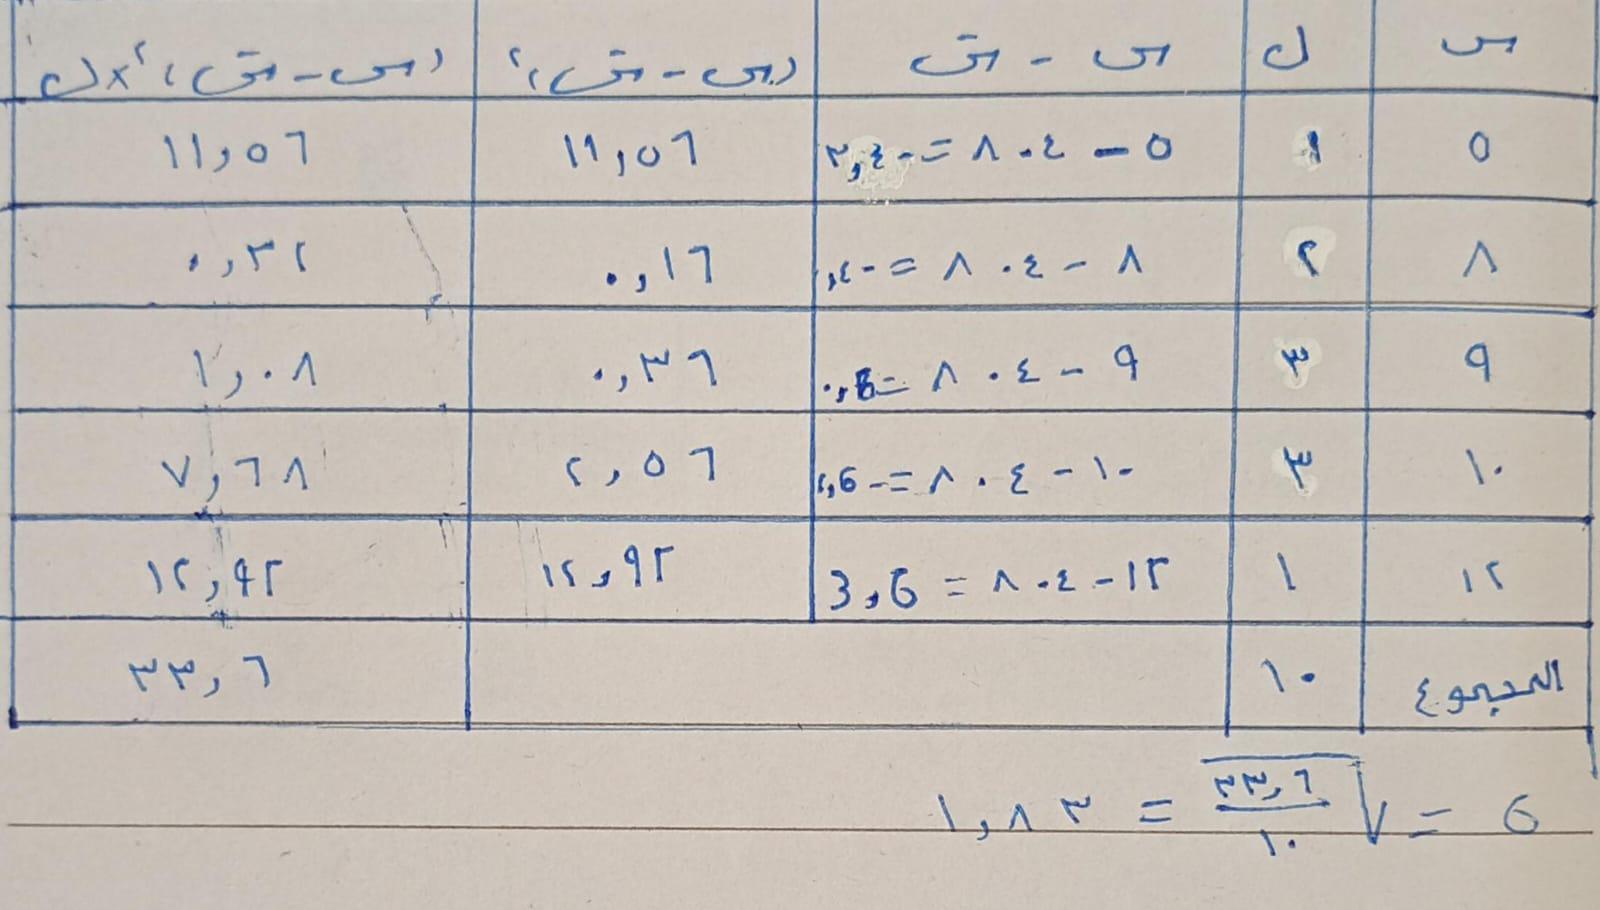 س ل س - سَ (س - سَ)² (س - سَ)² × ل
٥ ١ ٥ - ٨.٤ = -٣,٤ ١١,٥٦ ١١,٥٦
٨ ٢ ٨ - ٨.٤ = -٠,٤ ٠,١٦ ٠,٣٢
٩ ٣ ٩ - ٨.٤ = ٠,6 ٠,٣٦ ١,٠٨
١٠ ٣ ١٠ - ٨.٤ = -١,6 ٢,٥٦ ٧,٦٨
١٢ ١ ١٢ - ٨.٤ = 3,6 ١٢,٩٢ ١٢,٩٢
المجموع ١٠ ٣٣,٦
σ = √(٣٣,٦ / ١٠) = ١,٨٣